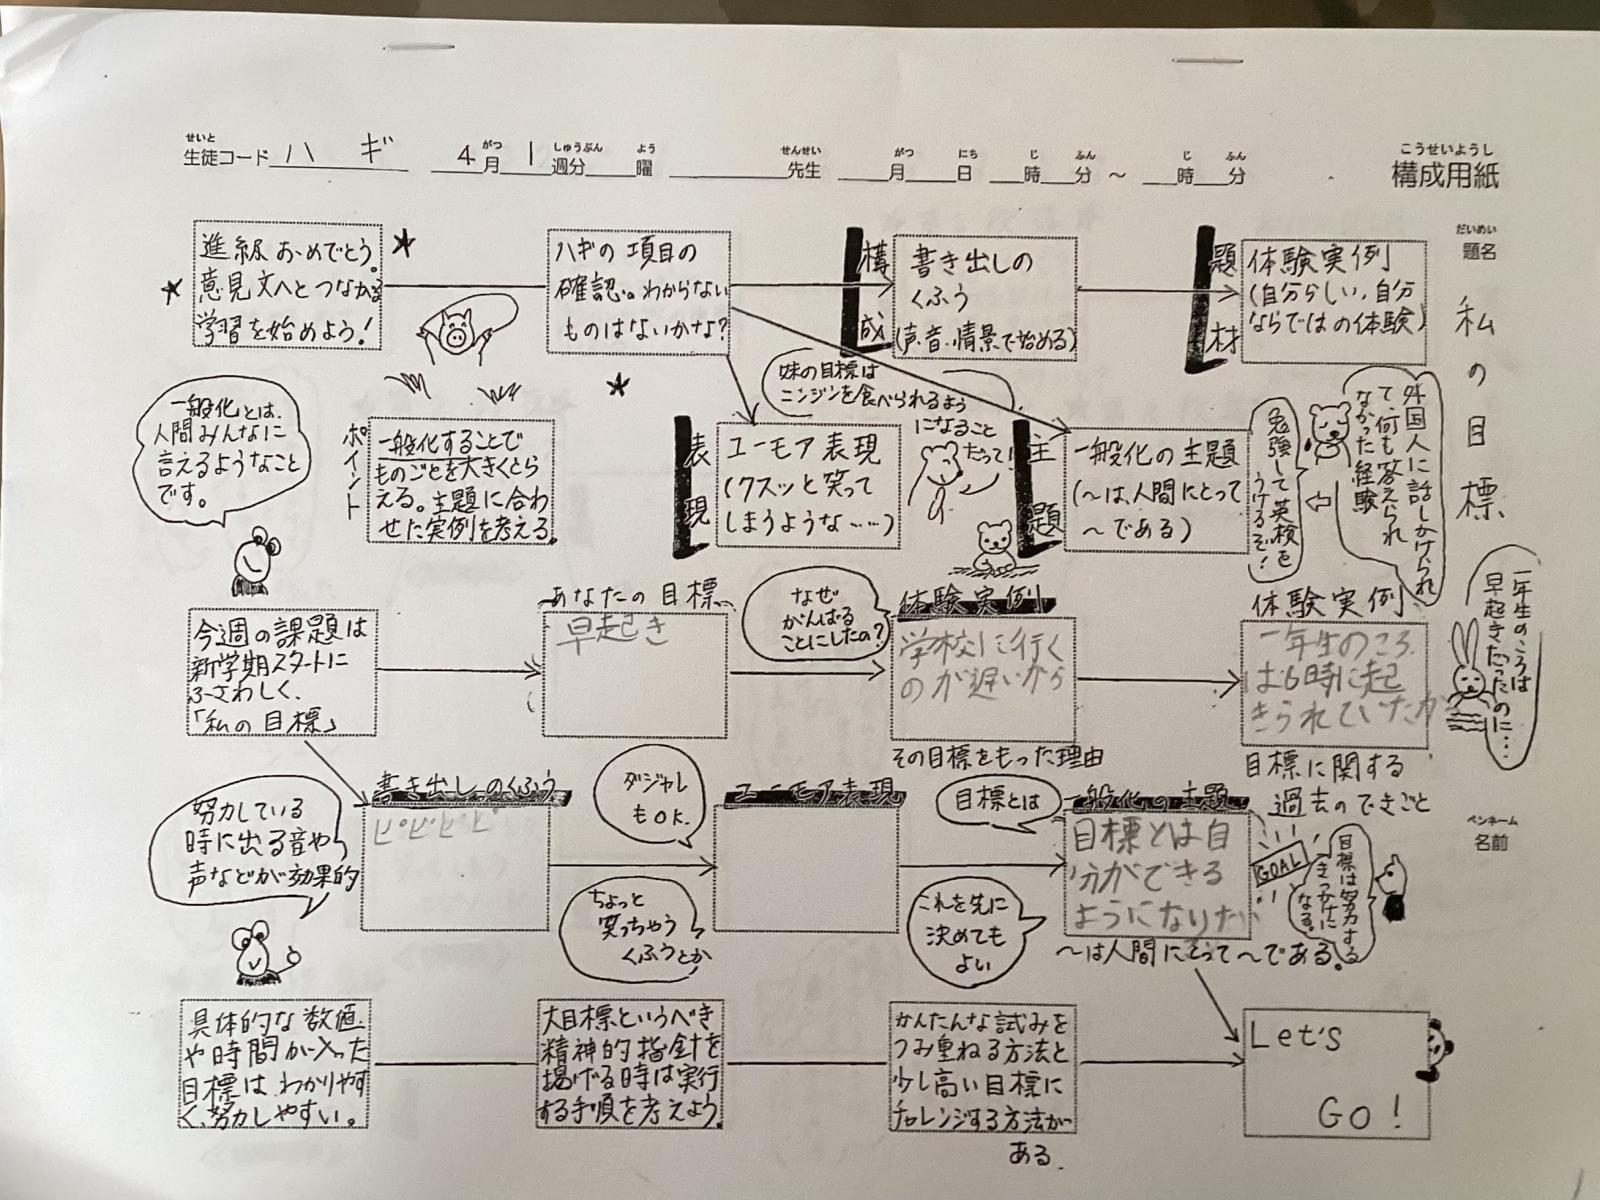 せいと
生徒コード ハギ 4月 1週分 曜 先生 月 日 時 分 〜 時 分
がつ しゅうぶん よう せんせい がつ にち じ ふん じ ふん
こうせいようし
構成用紙
だいめい
題名
私の目標
ペンネーム
名前
進級おめでとう。
意見文へとつながる
学習を始めよう!
ハギの項目の
確認。わからない
ものはないかな?
構成
書き出しの
くふう
(声、音、情景で始める)
題材
体験実例
(自分らしい、自分
ならではの体験)
一般化とは、
人間みんなに
言えるようなこと
です。
ポイント
一般化することで
ものごとを大きくとら
える。主題に合わ
せた実例を考える。
表現
ユーモア表現
(クスッと笑って
しまうような……)
妹の目標は
ニンジンを食べられるよう
になること
だって!
主題
一般化の主題
(〜は、人間にとって
〜である)
外国人に話しかけられ
て何も答えられ
なかった経験
勉強して英検を
うけるぞ!
今週の課題は
新学期スタートに
ふさわしく、
「私の目標」
あなたの目標
早起き
なぜ
がんばる
ことにしたの?
体験実例
学校に行く
のが遅いから
その目標をもった理由
体験実例
一年生のころ
は6時に起
きられていたが
目標に関する
過去のできごと
一年生のころは
早起きだったのに…
努力している
時に出る音や
声などが効果的
書き出しのくふう
ピピピピ
ダジャレ
もOK.
ちょっと
笑っちゃう
くふうとか
ユーモア表現
目標とは
これを先に
決めても
よい
一般化の主題
目標とは自
分ができる
ようになりた
〜は人間にとって〜である。
GOAL
目標は努力する
きっかけに
なる。
具体的な数値
や時間が入った
目標は、わかりやす
く、努力しやすい。
大目標というべき
精神的指針を
掲げる時は実行
する手順を考えよう。
かんたんな試みを
つみ重ねる方法と
少し高い目標に
チャレンジする方法が
ある.
Let's
GO!